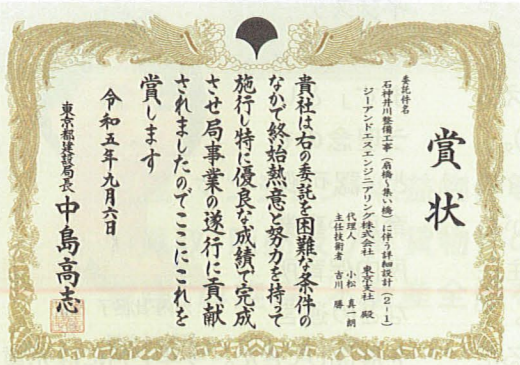 賞状
委託件名
石神井川整備工事(扇橋~集い橋)に伴う詳細設計(2-1)
ジーアンドエスエンジニアリング株式会社 東京支社 殿
代理人 小松 真一朗
主任技術者 吉川 勝
貴社は右の委託を困難な条件の
なかで終始熱意と努力を持って
施行し特に優良な成績で完成
させ局事業の遂行に貢献
されましたのでここにこれを
賞します
令和五年九月六日
東京都建設局長 中島高志